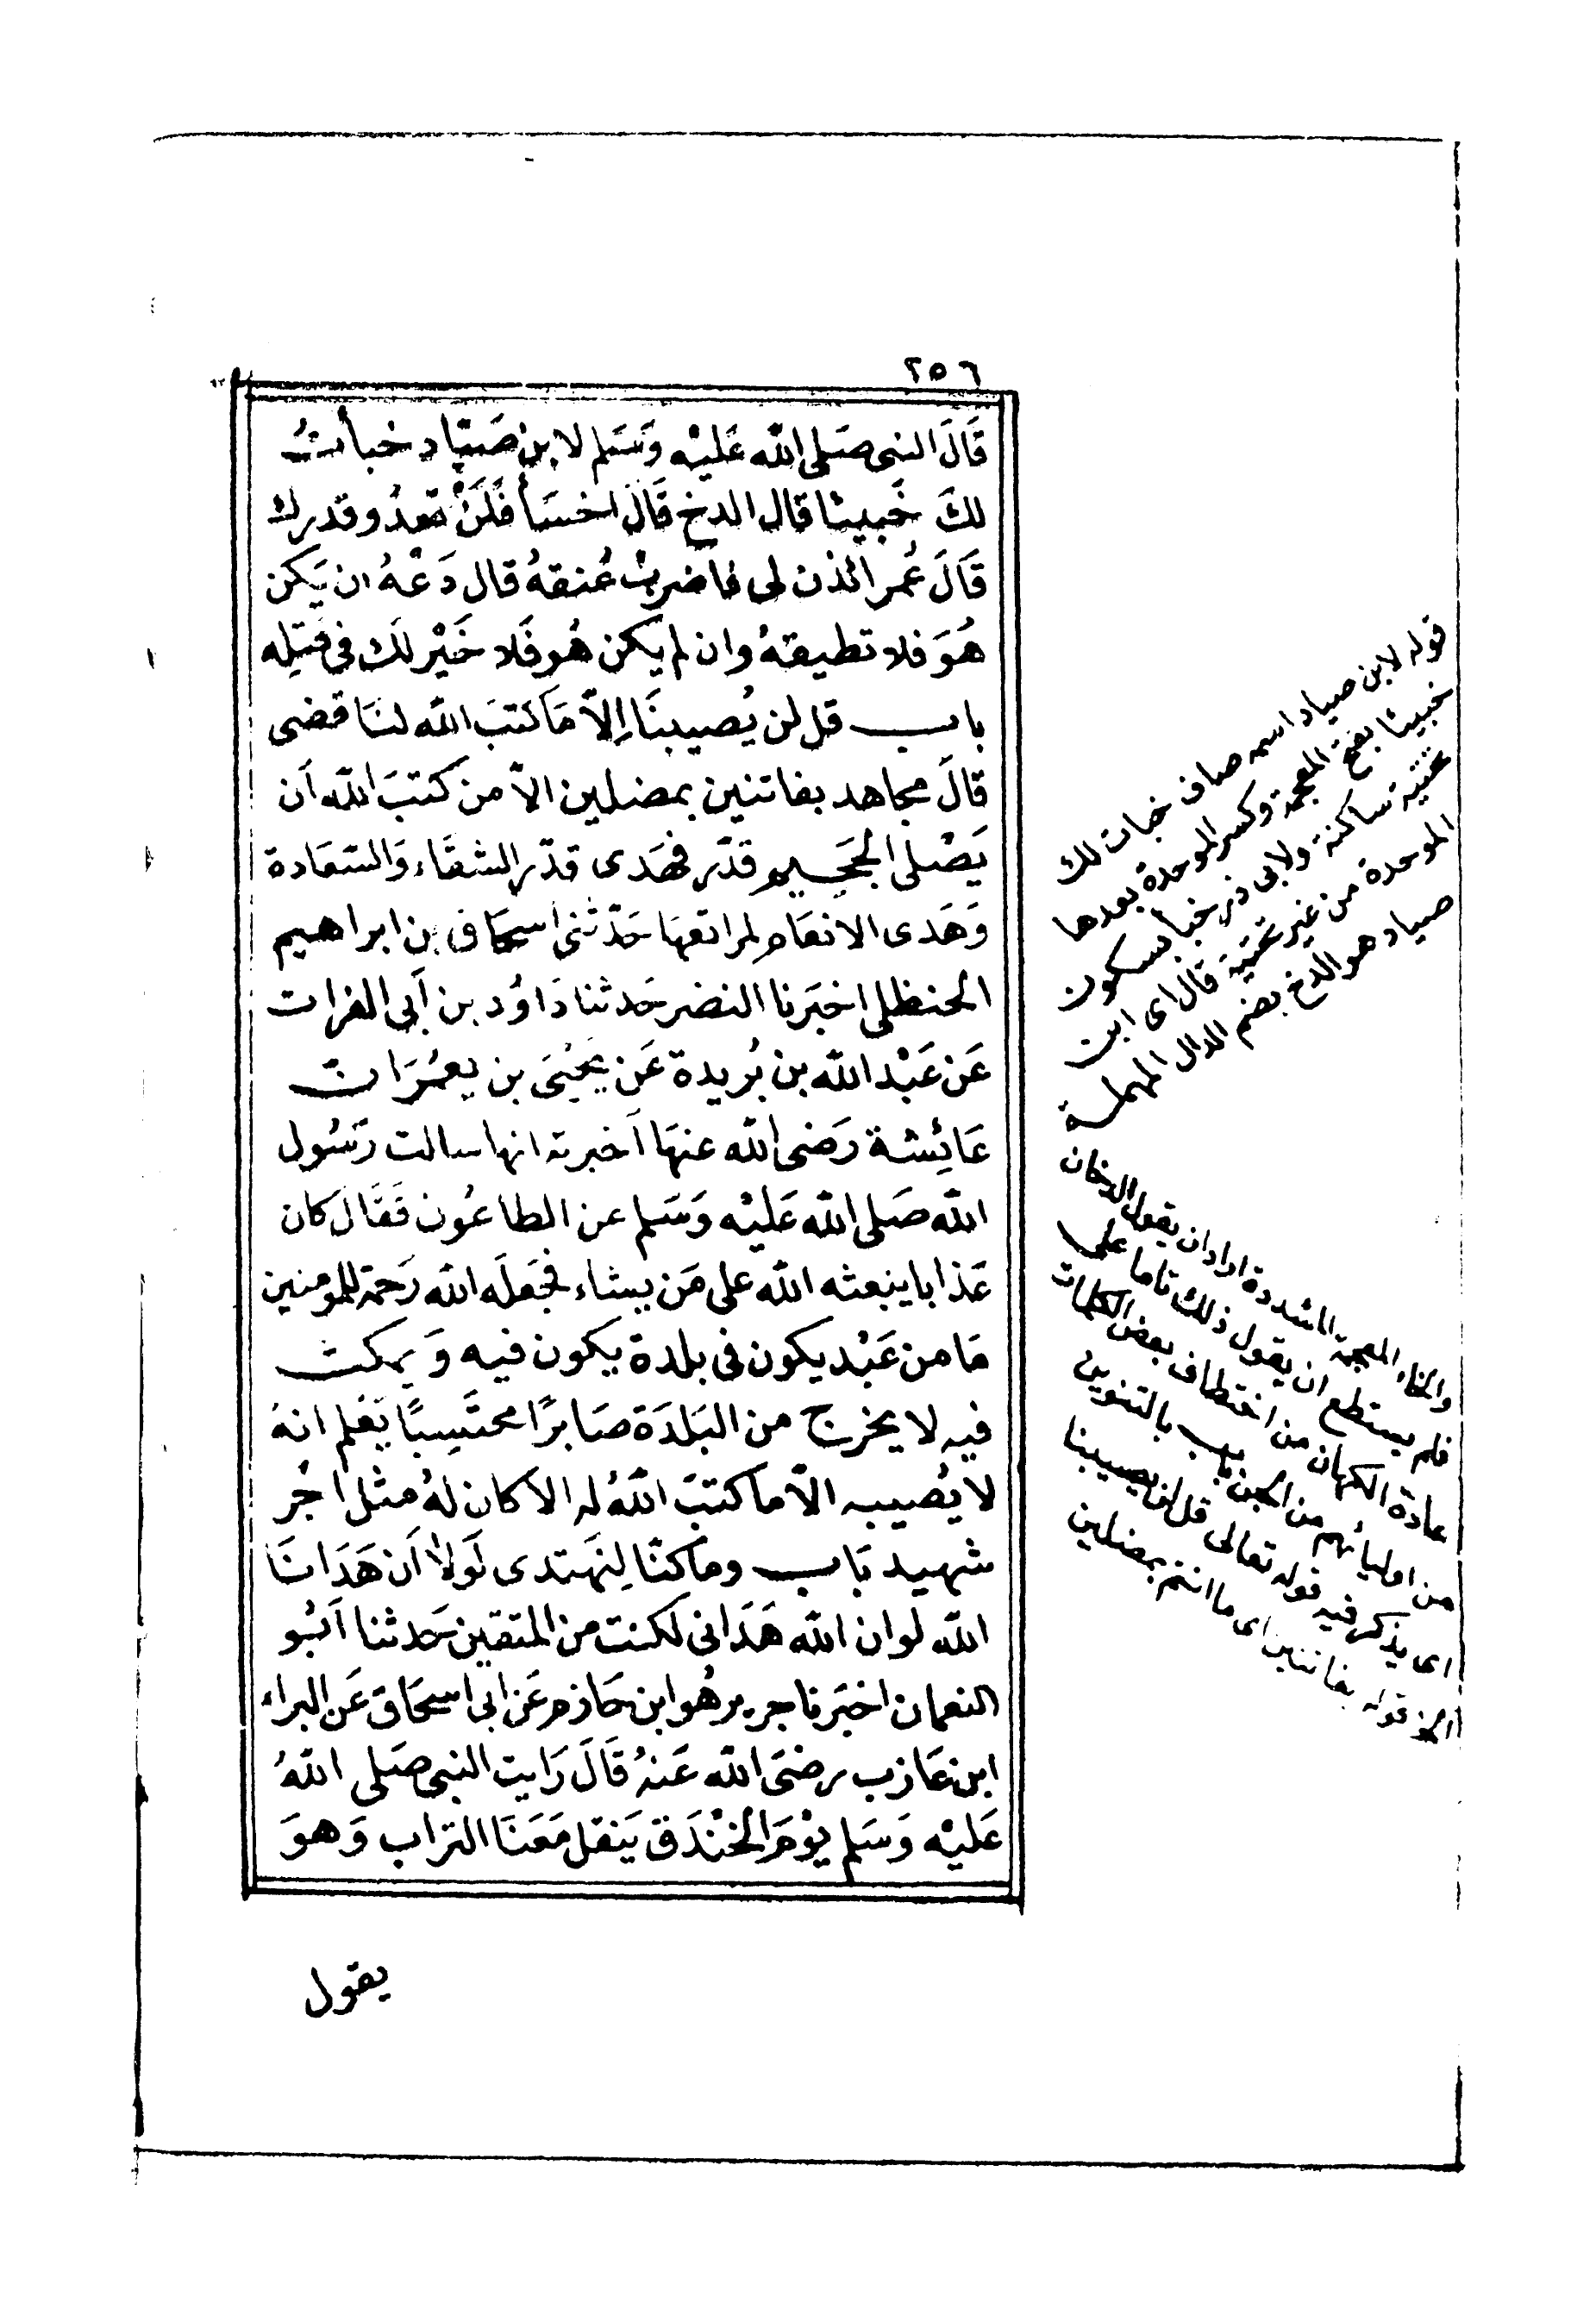 ٢٥٦
قَالَ النبى صَلى الله عَليْه وَسَلم لابن صَيّاد خبأتُ
لكَ خَبيئا قال الدخ قَالَ اخسَأ فَلَنْ تعدُو قدرك
قَالَ عُمر ائذن لى فاضرب عُنقهُ قال دَعْهُ ان يَكن
هُوَ فلا تطيقهُ وان لم يكن هُو فَلا خَيْر لك فى قتله
باب قل لن يُصيبنَا إلاّ مَا كتبَ الله لنَا قضى
قالَ مجاهد بفاتنين بمضلين الاّ من كتبَ الله اَن
يَصْلى الجَحيم قدّر فهَدى قدّر الشقَاء وَالسّعَادة
وَهَدى الانعَام لمراتعهَا حَدّثنى اسحَاق بن ابراهيم
الحنظلى اخبَرنا النضر حَدثنا دَاوُد بن اَبى الفرات
عَن عَبْد الله بن بُريدة عَن يَحْيَى بن يعمُرَ انّ
عَائِشة رَضى الله عنهَا اَخبرته انها سالت رَسُول
الله صَلى الله عَليْه وَسَلم عن الطاعُون فَقَالَ كان
عَذابا يبعثه الله على مَن يشاء فجَعلَه الله رَحمة للمومنين
مَا من عَبْد يكون فى بلدة يكون فيه وَيمكث
فيه لا يخرج من البَلدَة صَابرًا محتَسِبًا يَعْلم انهُ
لا يُصيبه الاّ ما كتبَ اللهُ له الا كان لهُ مثل اجْر
شهيد بَاب ومَا كنّا لِنهَتدى لَولا اَن هَدَانَا
الله لو ان الله هَدَانى لكنت من المتقين حَدثنا اَبُو
النعمان اخبَرنا جرير هُو ابن حَازم عَن ابى اسحَاق عَن البراء
ابن عَازب رضىَ الله عَنهُ قَالَ رَايت النبى صَلى اللهُ
عَليْه وَسَلم يوْمَ الخنْدَق يَنقل مَعَنَا التراب وَهوَ
يقول
قوله لابن صياد اسمه صاف خبات لك
خبيئا بفتح المعجمة وكسر الموحدة بعدها
تحتية ساكنة ولابى ذر خبا بسكون
الموحدة من غير تحتية قال اى ابن
صياد هو الدخ بضم الدال المهملة
والخاء المعجمة المشددة اراد ان يقول الدخان
فلم يستطع ان يقول ذلك تاما على
عادة الكهان من اختطاف بعض الكلمات
من اوليائهم من الجن باب بالتنوين
اى يذكر فيه قوله تعالى قل لن يصيبنا
الخ قوله بفاتنين اى ما انتم بمضلين